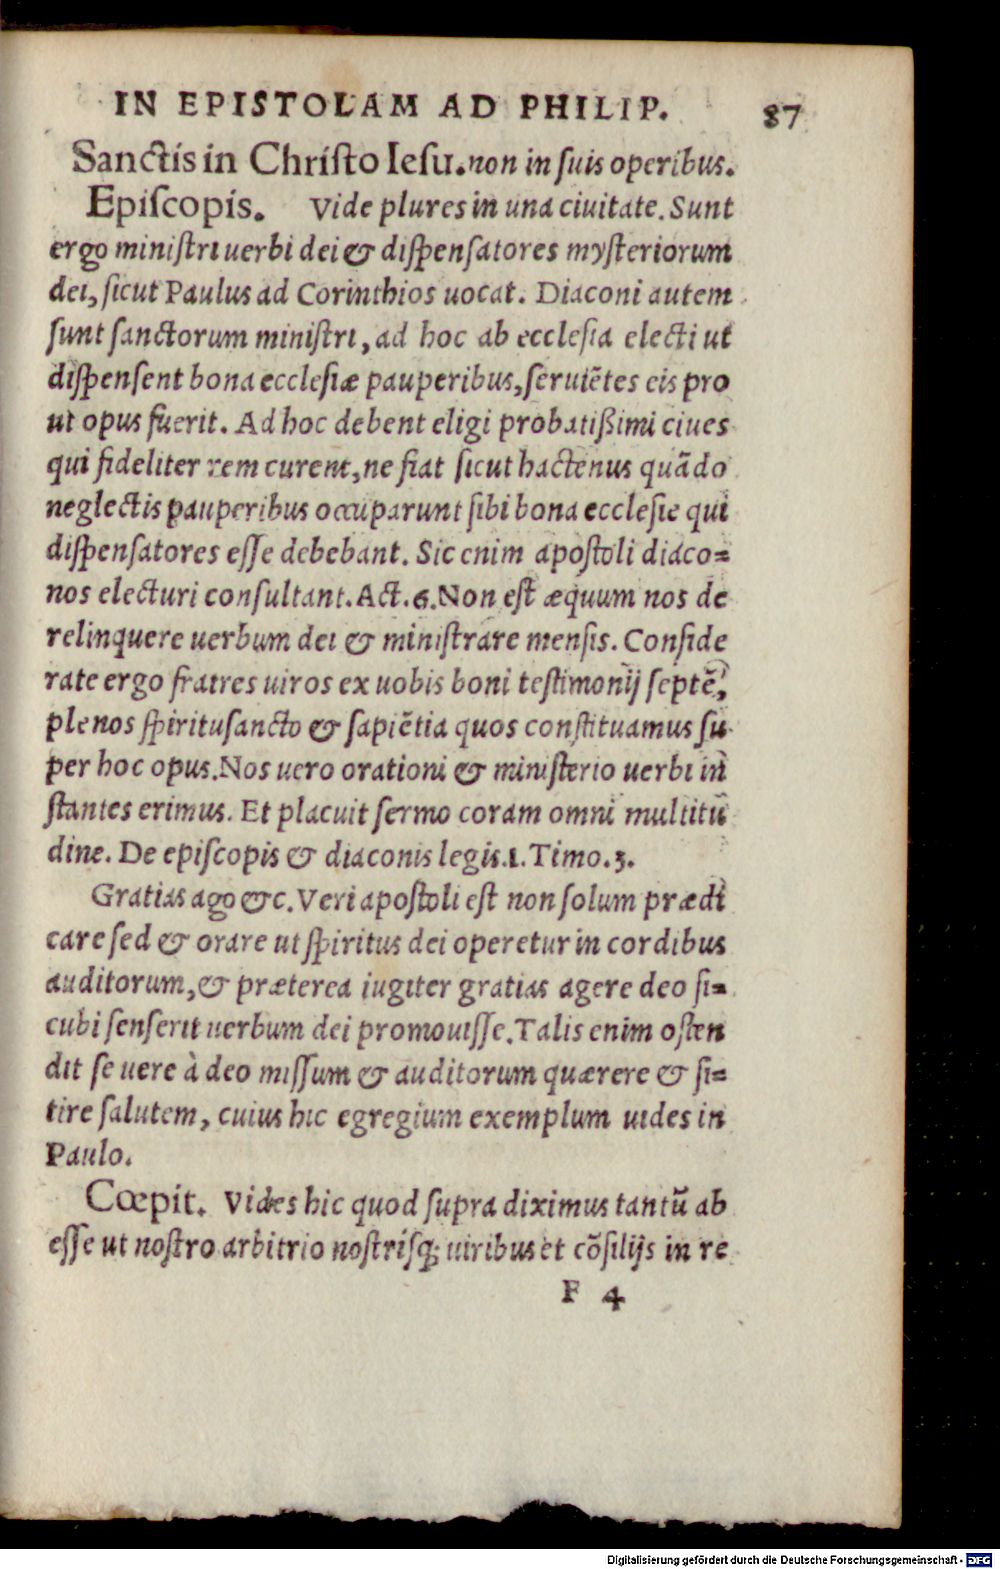 IN EPISTOLAM AD PHILIP. 87
Sanctis in Christo Iesu. non in suis operibus.
Episcopis. Vide plures in una ciuitate. Sunt
ergo ministri uerbi dei & dispensatores mysteriorum
dei, sicut Paulus ad Corinthios uocat. Diaconi autem
sunt sanctorum ministri, ad hoc ab ecclesia electi ut
dispensent bona ecclesiæ pauperibus, seruiẽtes eis pro
ut opus fuerit. Ad hoc debent eligi probatißimi ciues
qui fideliter rem curent, ne fiat sicut hactenus quãdo
neglectis pauperibus occuparunt sibi bona ecclesie qui
dispensatores esse debebant. Sic enim apostoli diaco=
nos electuri consultant. Act. 6. Non est æquum nos de
relinquere uerbum dei & ministrare mensis. Conside
rate ergo fratres uiros ex uobis boni testimonij septẽ,
plenos spiritusancto & sapiẽtia quos constituamus su
per hoc opus. Nos uero orationi & ministerio uerbi in
stantes erimus. Et placuit sermo coram omni multitu
dine. De episcopis & diaconis legis. 1. Timo. 3.
Gratias ago &c. Veri apostoli est non solum prædi
care sed & orare ut spiritus dei operetur in cordibus
auditorum, & præterea iugiter gratias agere deo si=
cubi senserit uerbum dei promouisse. Talis enim osten
dit se uere à deo missum & auditorum quærere & si=
tire salutem, cuius hic egregium exemplum uides in
Paulo.
Cœpit. Vides hic quod supra diximus tantũ ab
esse ut nostro arbitrio nostrisq; uiribus et cõsilijs in re
F 4
Digitalisierung gefördert durch die Deutsche Forschungsgemeinschaft - DFG